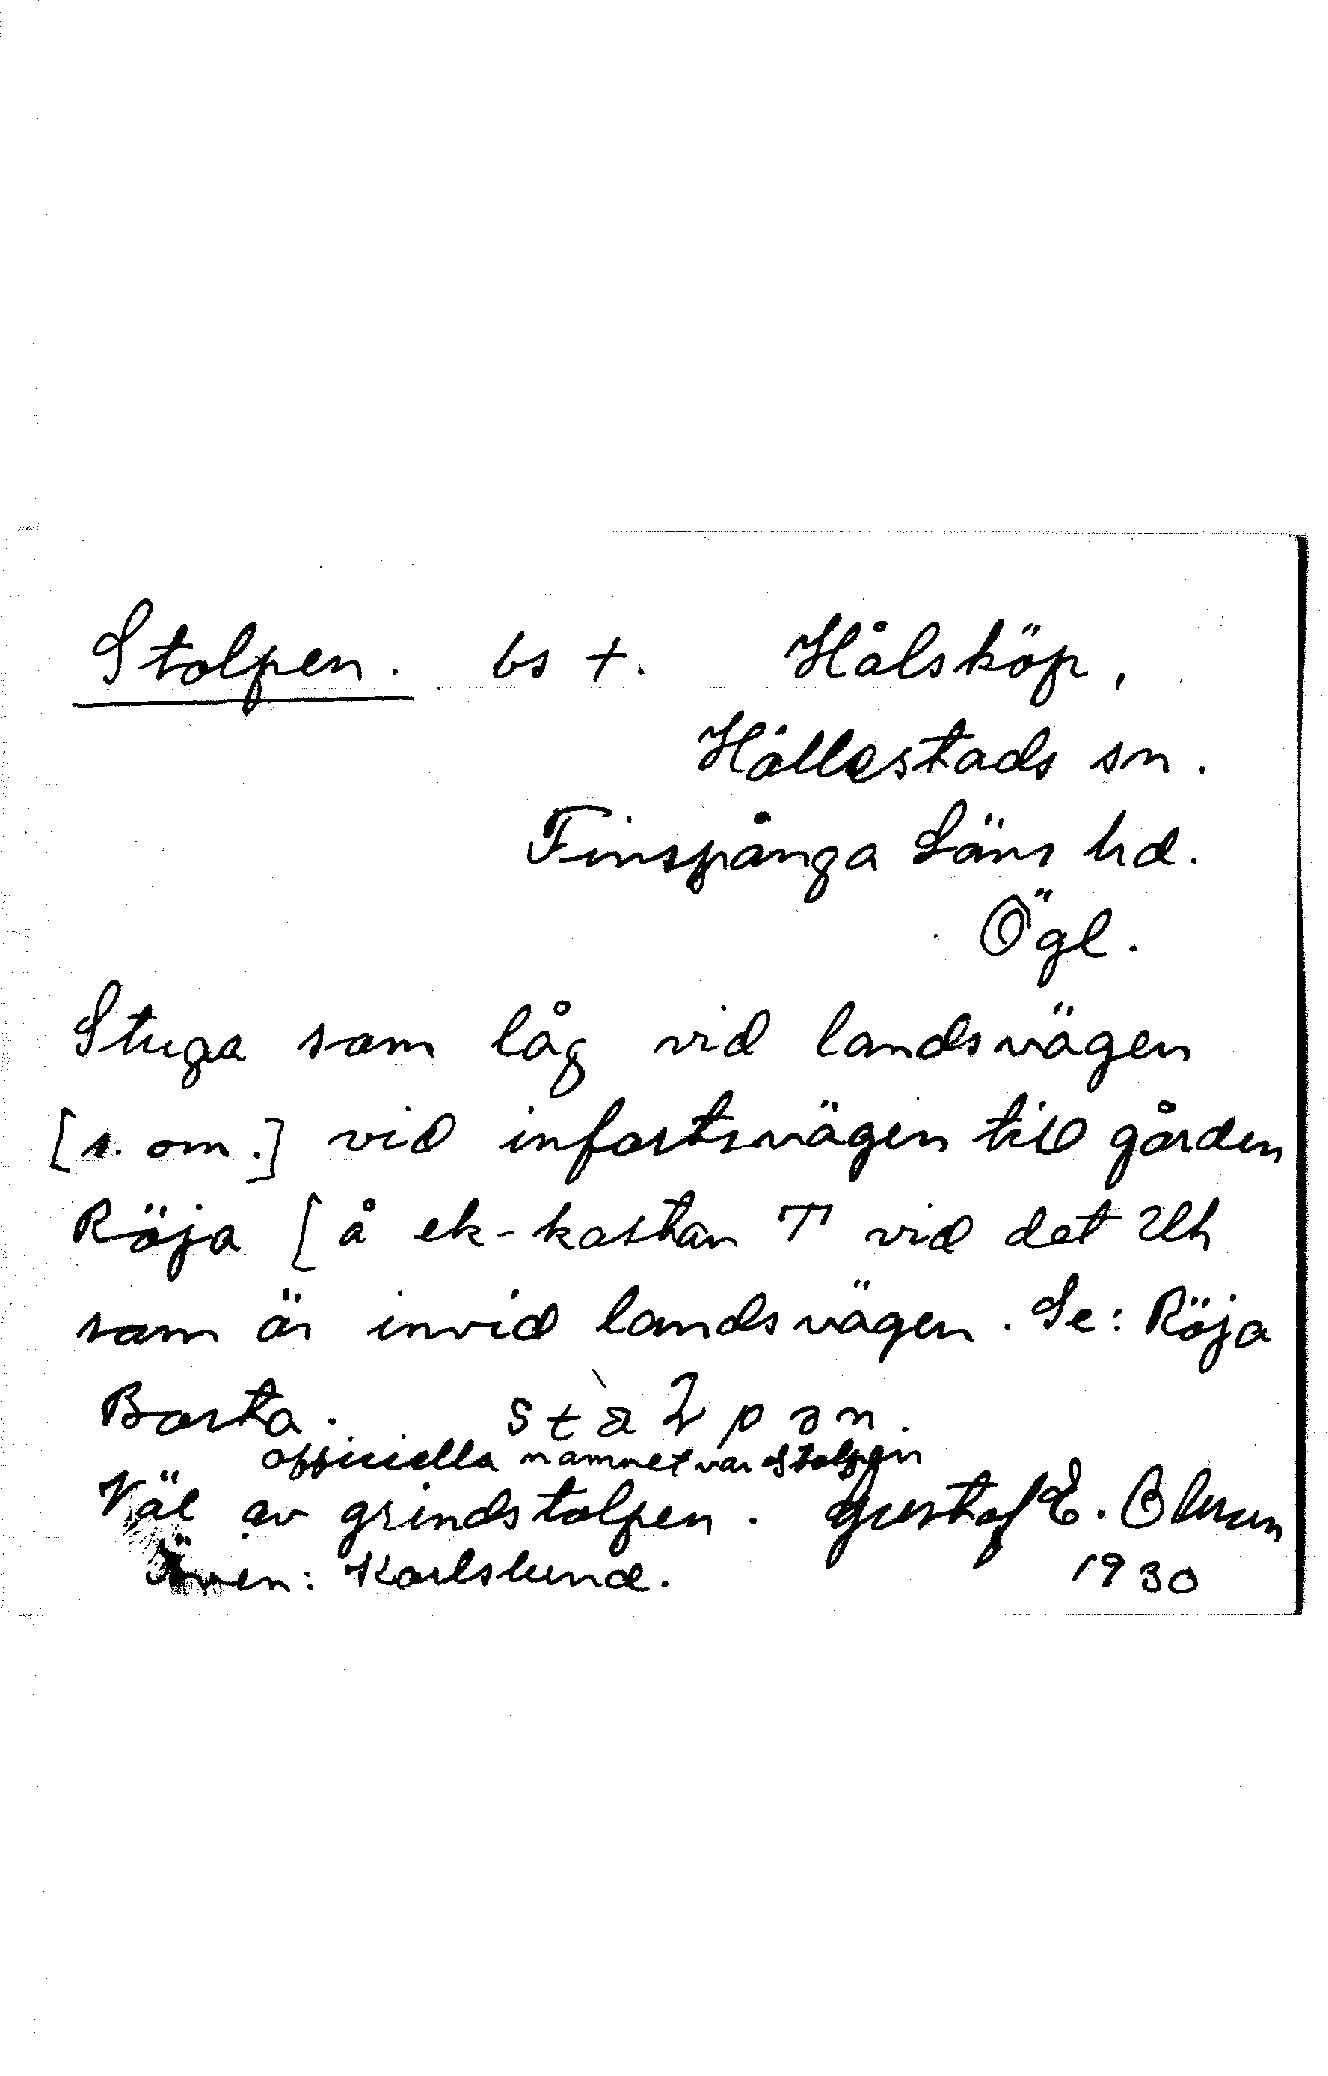 Stolpen. bs +. Hålsköp,
Hällestads sn.
Finspånga Läns hd.
Ögl.
Stuga som låg vid landsvägen
[s. om.] vid infartsvägen till gården
Röja [å ek-kartan T vid det
som är invid landsvägen. Se: Röja
Borta.
officiella namnet var Stolpen
Väl av grindstolpen. Gustaf E. Olsson
Även: Karlslund. 1930